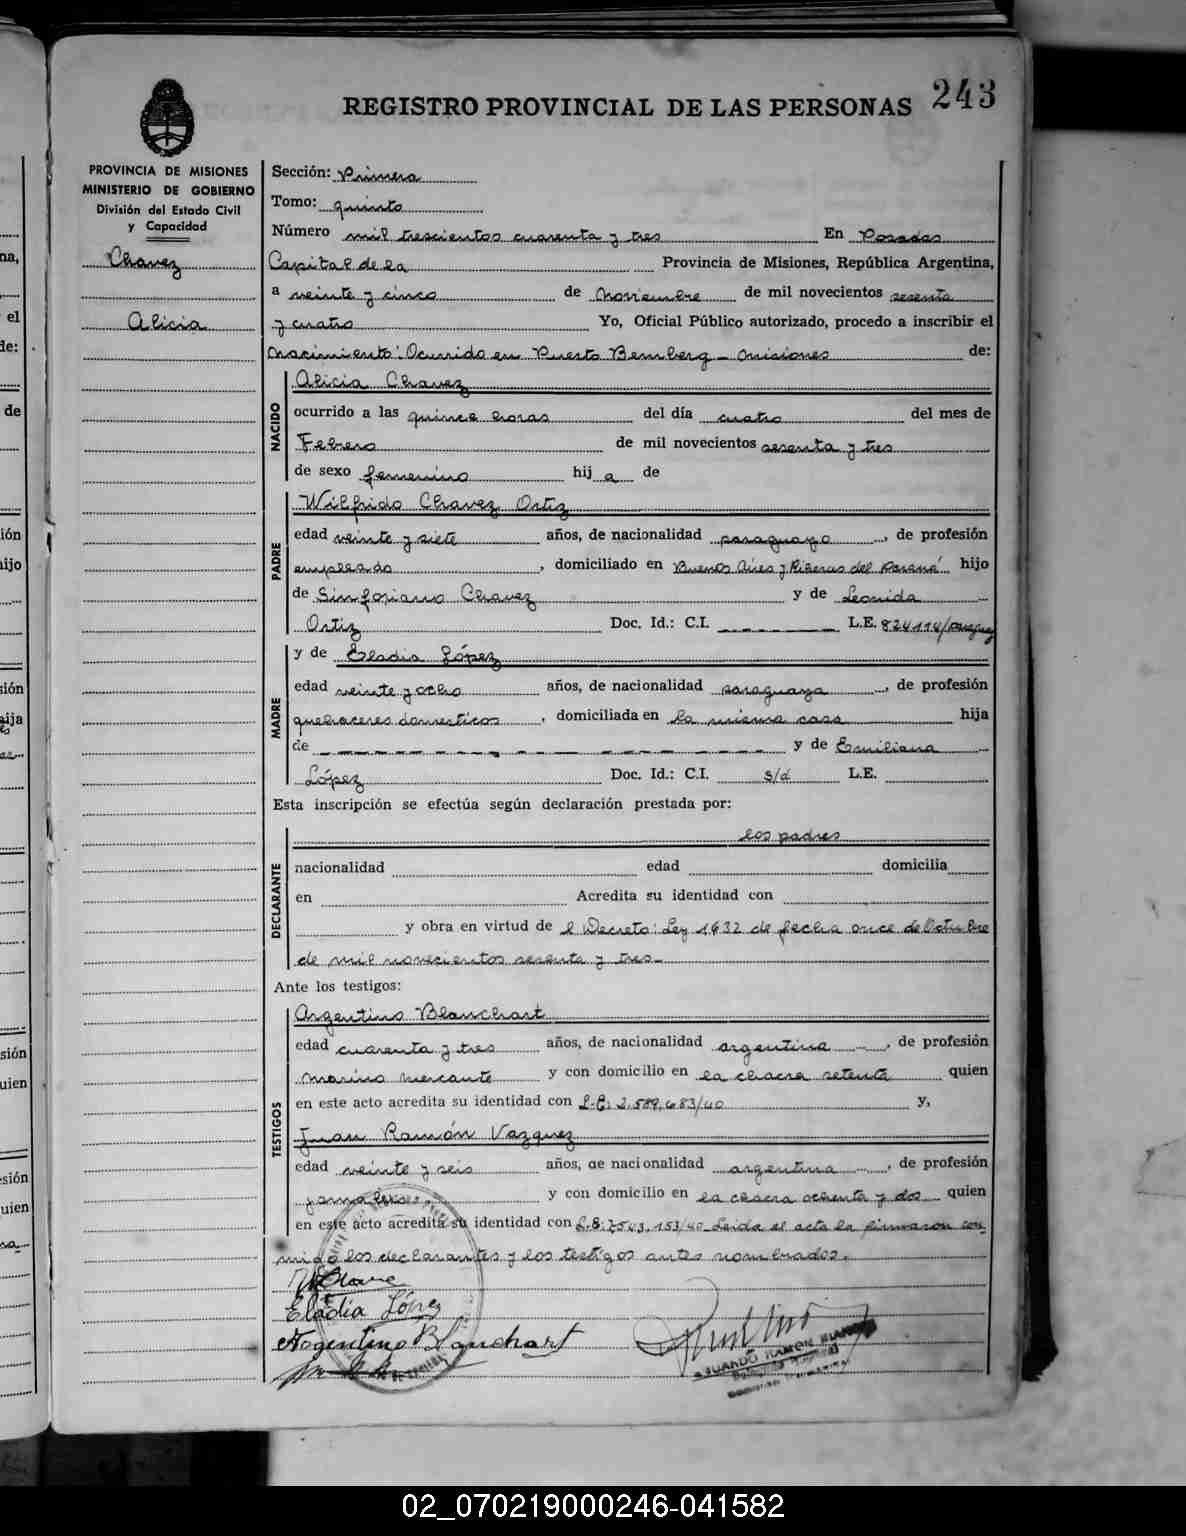 243
REGISTRO PROVINCIAL DE LAS PERSONAS
PROVINCIA DE MISIONES
MINISTERIO DE GOBIERNO
División del Estado Civil
y Capacidad
Chavez
Alicia
Sección: Primera
Tomo: quinto
Número mil trescientos cuarenta y tres En Posadas
Capital de la Provincia de Misiones, República Argentina,
a veinte y cinco de Noviembre de mil novecientos sesenta
y cuatro Yo, Oficial Público autorizado, procedo a inscribir el
Nacimiento: Ocurrido en Puerto Bemberg - Misiones de:
NACIDO
Alicia Chavez
ocurrido a las quince horas del día cuatro del mes de
Febrero de mil novecientos sesenta y tres
de sexo femenino hij a de
PADRE
Wilfrido Chavez Ortiz
edad veinte y siete años, de nacionalidad paraguayo, de profesión
empleado, domiciliado en Buenos Aires y Riberas del Paraná hijo
de Sinforiano Chavez y de Leonida
Ortiz Doc. Id.: C.I. - - - - - - L.E. 824114/paraguay
MADRE
y de Eladia López
edad veinte y ocho años, de nacionalidad paraguaya, de profesión
quehaceres domesticos, domiciliada en la misma casa hija
de - - - - - - - - - - - - y de Emiliana
López Doc. Id.: C.I. s/d L.E.
Esta inscripción se efectúa según declaración prestada por:
DECLARANTE
los padres
nacionalidad edad domicilia
en Acredita su identidad con
y obra en virtud de l Decreto: Ley 1632 de fecha once de Octubre
de mil novecientos sesenta y tres.-
Ante los testigos:
TESTIGOS
Argentino Blanchart
edad cuarenta y tres años, de nacionalidad argentina, de profesión
marino mercante y con domicilio en la chacra setenta quien
en este acto acredita su identidad con L.E: 2.589.683/40 y,
Juan Ramón Vazquez
edad veinte y seis años, de nacionalidad argentina, de profesión
jornalero y con domicilio en la chacra ochenta y dos quien
en este acto acredita su identidad con L.E: 7543.153/40 Leida el acta la firmaron con
migo los declarantes y los testigos antes nombrados.
Eladia López
Argentino Blanchart
EDUARDO RAMON
02_070219000246-041582